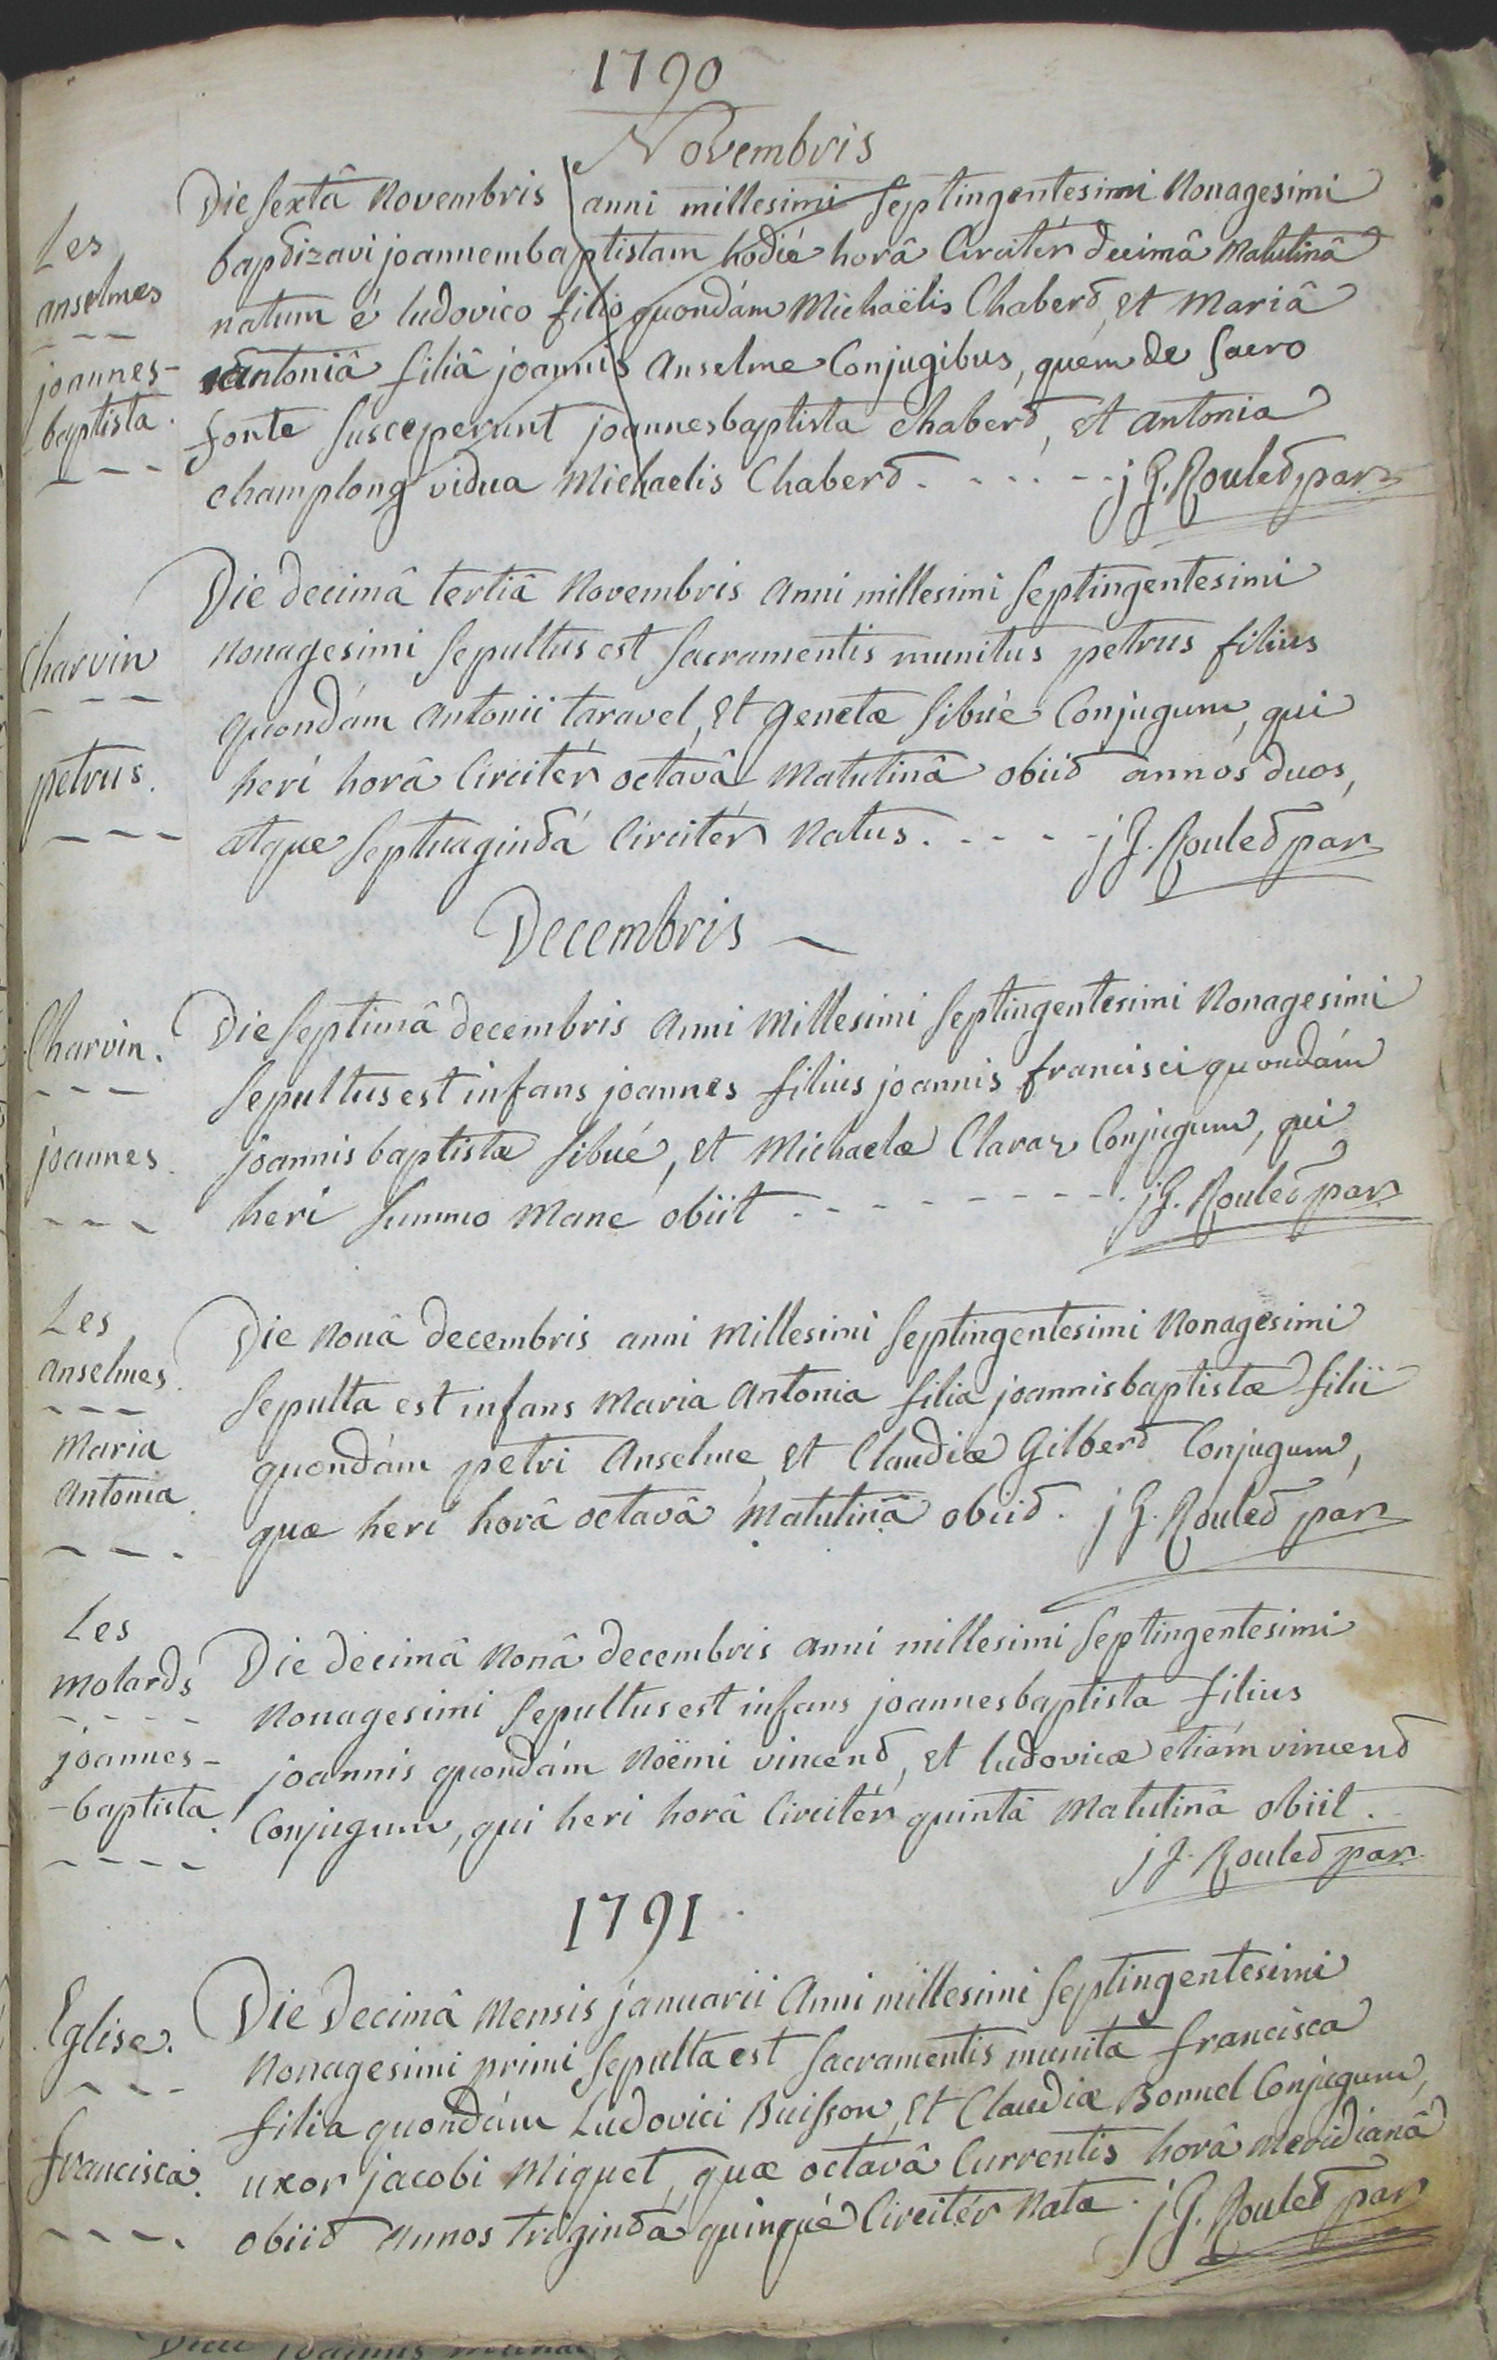 1790
Novembris
Les
anselmes
joannes-
baptista.
Die sextâ Novembris anni millesimi septingentesimi Nonagesimi
baptizavi joannembaptistam hodié horâ Circitér decimâ Matutinâ
natum é ludovico filio quondám Michaëlis Chabert, et Mariâ
Antoniâ filiâ joannis Anselme Conjugibus, quem de sacro
fonte susceperunt joannesbaptista chabert, et antonia
champlong vidua Michaelis Chabert. j G. Roulet par
Charvin
petrus.
Die decimâ tertiâ Novembris Anni millesimi septingentesimi
Nonagesimi sepultus est sacramentis munitus petrus filius
quondám Antonii taravel, et genetæ sibüé Conjugum, qui
heri horâ Circitér octavâ Matutinâ obiit annos duos,
atque septuagintá Circitér Natus. j G. Roulet par
Decembris
Charvin.
joannes.
Die septimâ decembris Anni Millesimi septingentesimi Nonagesimi
sepultus est infans joannes filius joannis francisci quondám
joannis baptistæ sibué, et Michaelæ Claraz Conjugum, qui
heri summo Mane obiit j G. Roulet par
Les
Anselmes.
Maria
Antonia
Die Nonâ decembris anni Millesimi septingentesimi Nonagesimi
sepulta est infans Maria Antonia filia joannisbaptistæ filii
quondám petri Anselme, et Claudiæ Gilbert Conjugum,
quæ heri horâ octavâ Matutinâ obiit. j G. Roulet par
Les
Molards
joannes-
-baptista.
Die decimâ Nonâ decembris anni millesimi septingentesimi
Nonagesimi sepultus est infans joannesbaptista filius
joannis quondám Noëmi vincent, et ludovicæ etiám vincent
Conjugum, qui heri horâ Circitér quintâ Matutinâ obiit.
j G. Roulet par
1791
Eglise.
francisca.
Die Decimâ Mensis januarii Anni millesimi septingentesimi
Nonagesimi primi sepulta est sacramentis munita francisca
filia quondám Ludovici Buisson, et Claudiæ Bonnel Conjugum,
uxor jacobi Miquet, quæ octavâ Currentis horâ meridianâ
obiit Annos trigintá quinqué Circitér Nata. j G. Roulet par